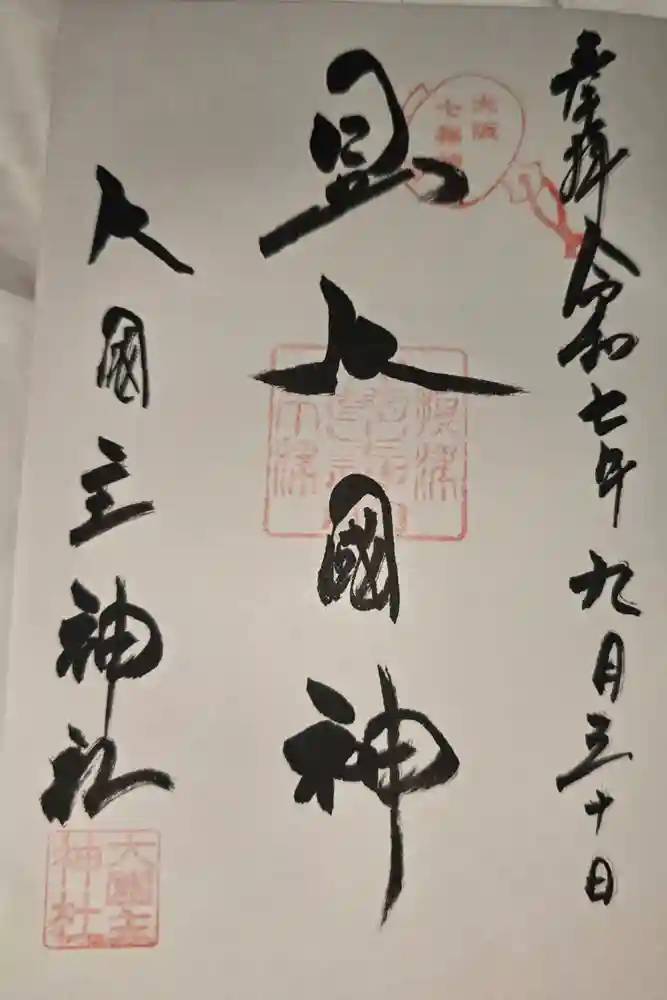 奉拝 令和七年九月三十日
大阪
七福神
大國神
大國主神社
大國主
神社